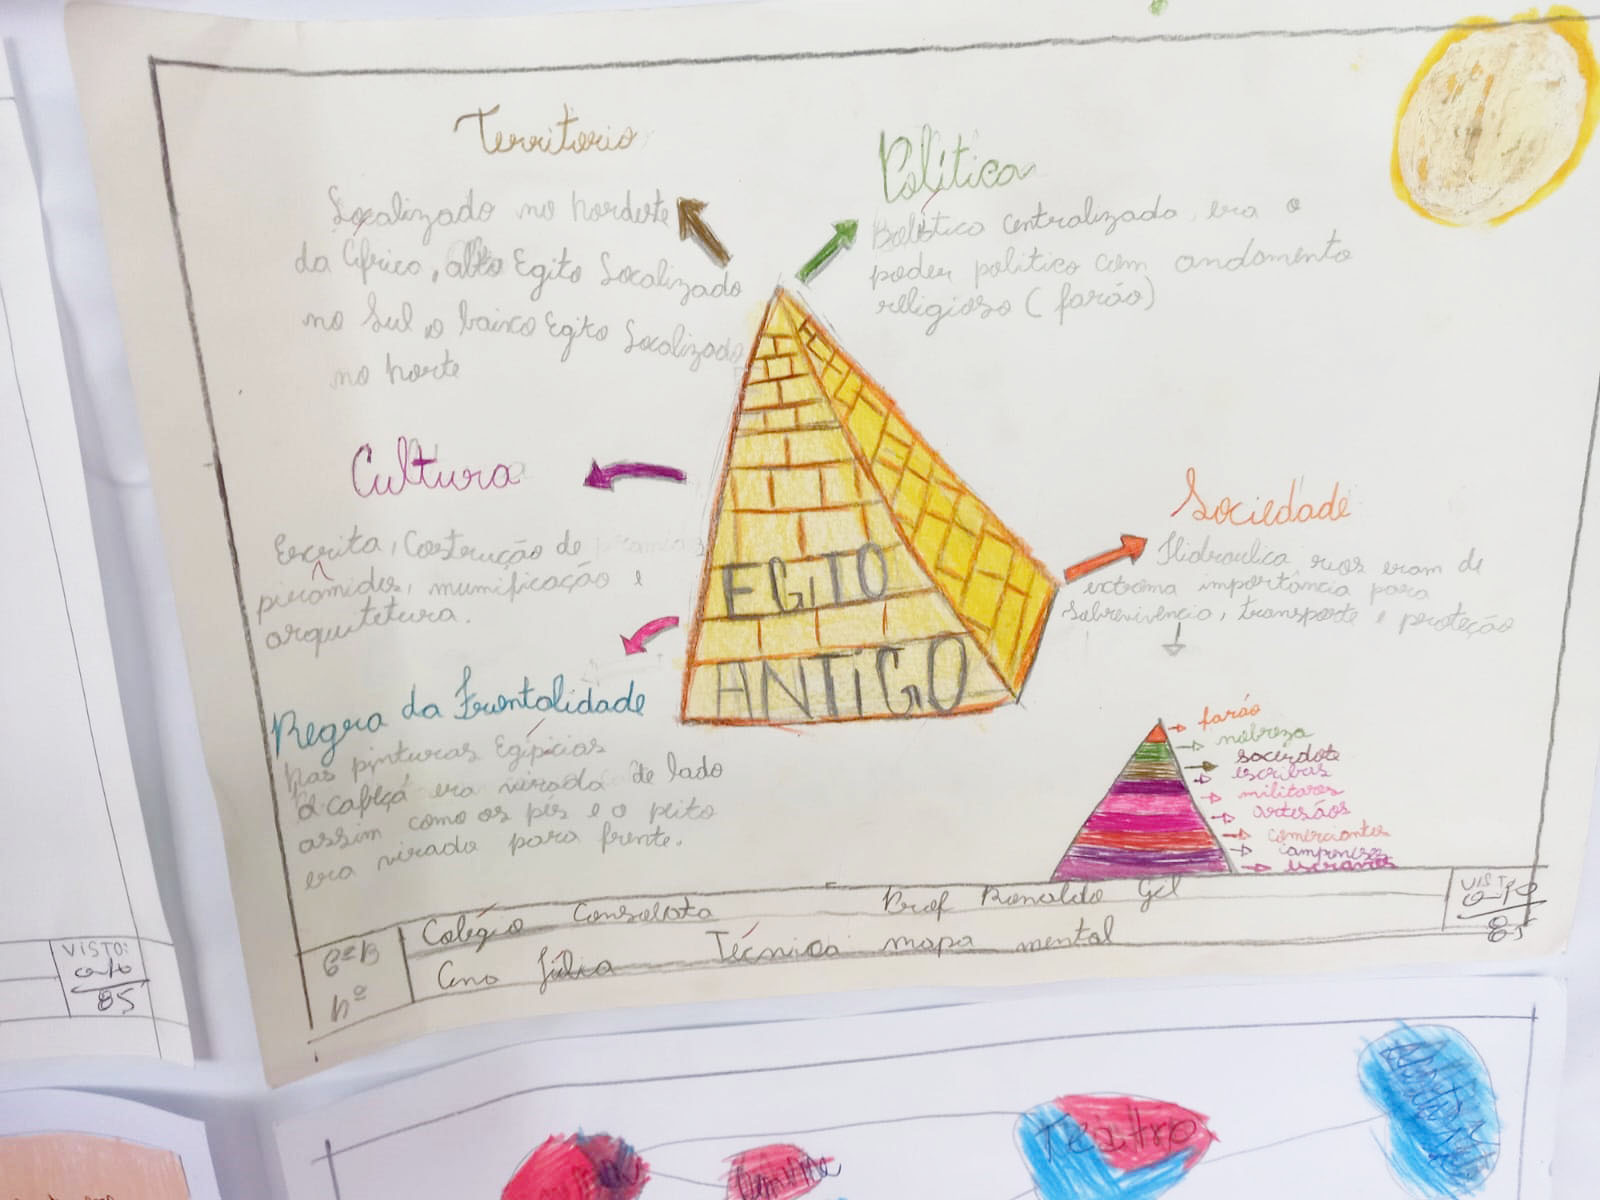 Territorio
Localizado no nordete
da África, alto Egito Localizado
no Sul o baixo Egito Localizado
no norte
Política
Política centralizada, era o
poder politico com andamento
religioso (faráo)
Cultura
Escrita, Costrução de
pirâmides, mumificação e
arquitetura.
Regra da Frontalidade
nas pinturas Egípicias
a cabeça era virada de lado
assim como os pés e o peito
era virado para frente.
EGITO
ANTIGO
Sociedade
Hidraulica rios eram de
extrema importância para
Sobrevivência, transporte e proteção
faráo
nobreza
sacerdote
escribas
militares
artesãos
comerciantes
camponeses
escravos
6ºB
nº
Colégio Consolata
Prof Ronaldo Gil
Ana Júlia
Técnica mapa mental
VISTO
85
VISTO:
85
Teatro